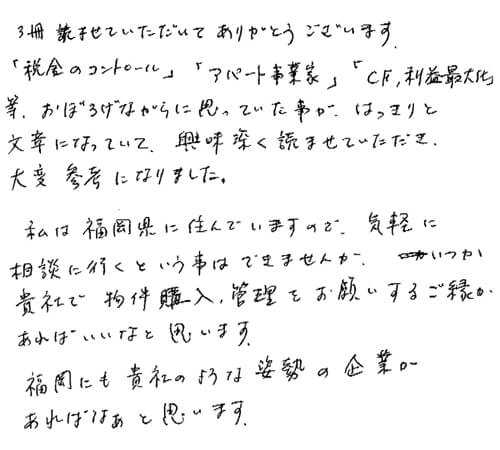 3冊 読ませていただいて ありがとうございます.
「税金のコントロール」「アパート事業家」「CF,利益最大化」
等、おぼろげながらに思っていた事が、はっきりと
文章になっていて、興味深く読ませていただき、
大変 参考になりました。
私は福岡県に住んでいますので、気軽に
相談に行くという事はできませんが、いつか
貴社で 物件購入,管理をお願いするご縁が
あればいいなと思います.
福岡にも貴社のような姿勢の企業が
あればなあと思います.